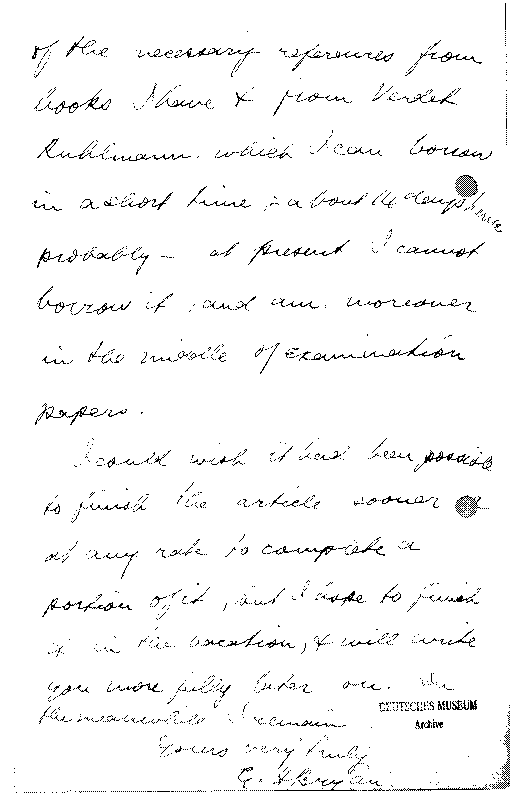 of the necessary references from
books I have & from Verdet
Ruhlmann. which I can borrow
in a short time - about 10 days' time
probably - at present I cannot
borrow it, and am. moreover
in the middle of examination
papers.
I could wish it had been possible
to finish the article sooner or
at any rate to complete a
portion of it, but I hope to finish
it in the vacation, & will write
you more fully later on. In
the meanwhile I remain
Yours very truly
G. H Bryan
DEUTSCHES MUSEUM
Archive